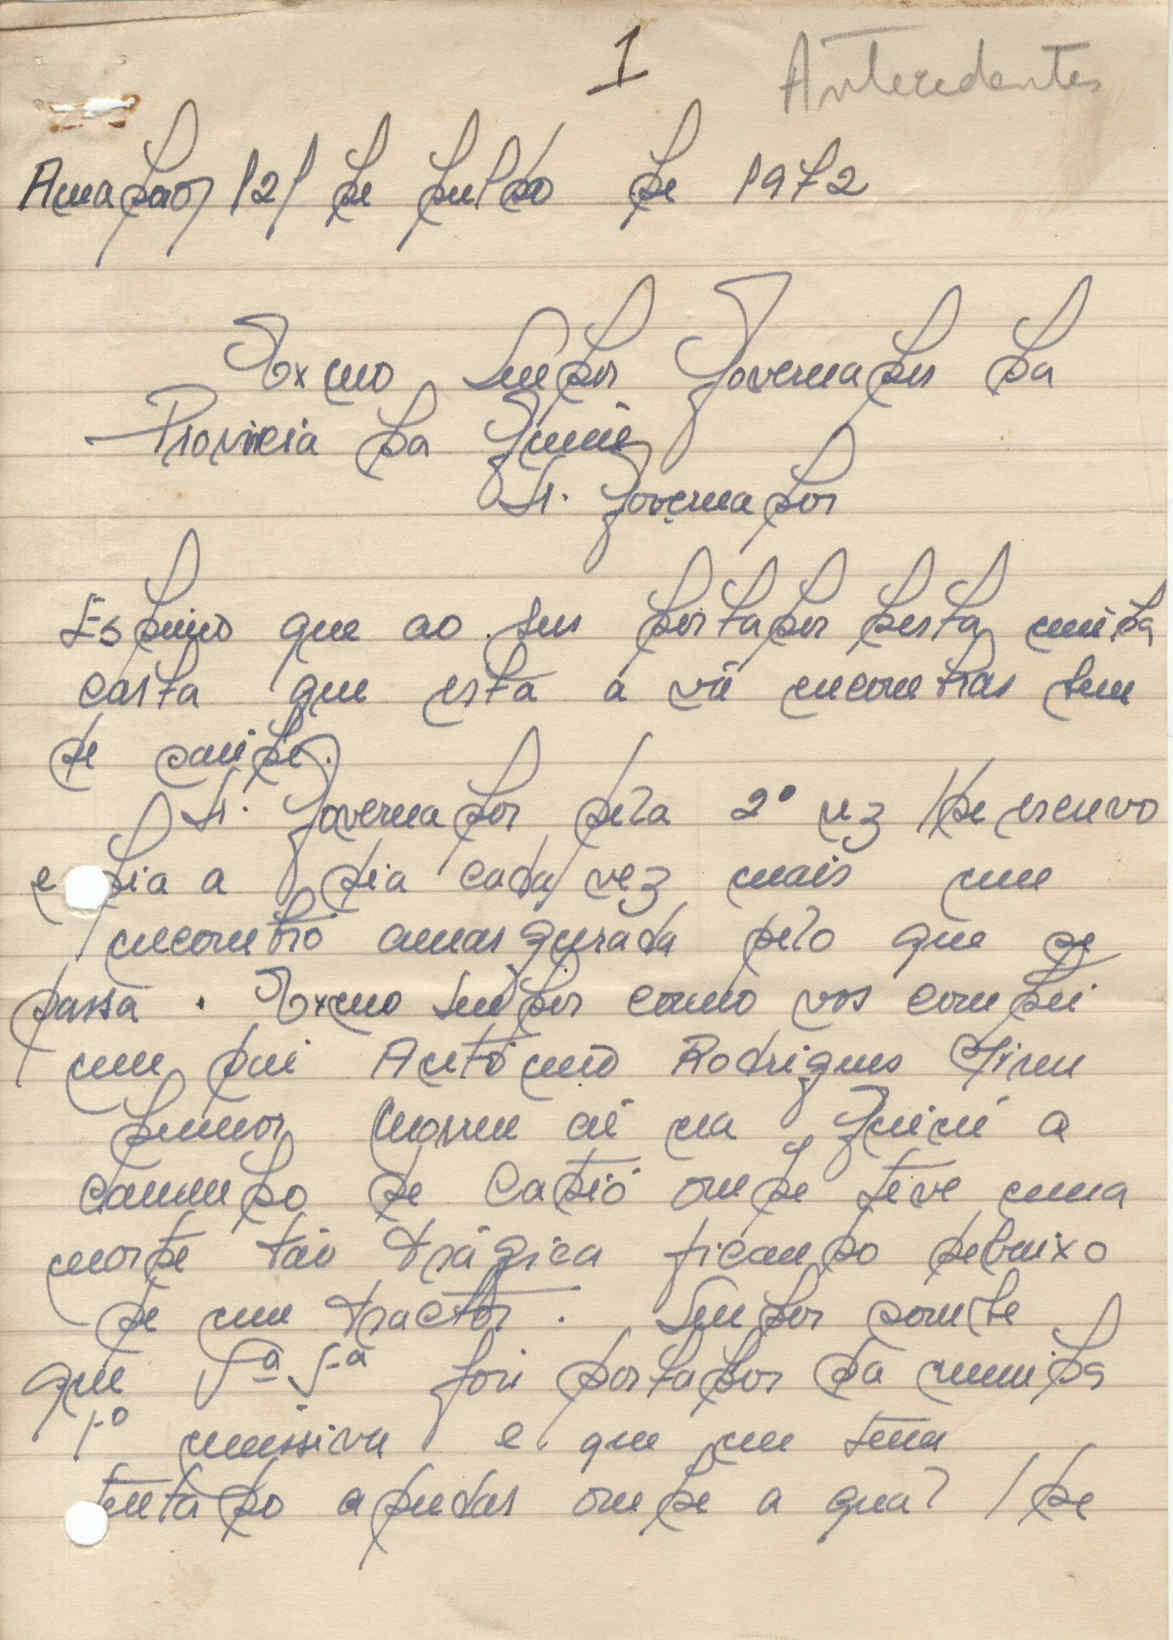 1 Antecedentes
Amadora, 21 de Julho de 1972
Exmo Senhor Governador da
Provincia da Guiné
Sr. Governador
que ao ser portador desta minha
carta que esta a vá encontrar bem
de saúde.
Sr. Governador pela 2º vez lhe escrevo
e dia a dia cada vez mais me
encontro amargurada pelo que se
passa. Exmo Senhor como vos contei
meu pai António Rodrigues
Junior morreu aí na Guiné a
caminho de Catió onde teve uma
morte tão trágica ficando debaixo
de um tractor. Senhor soube
que Vª Sª foi portador da minha
1º missiva e que me tem
tentado ajudar onde a qual lhe